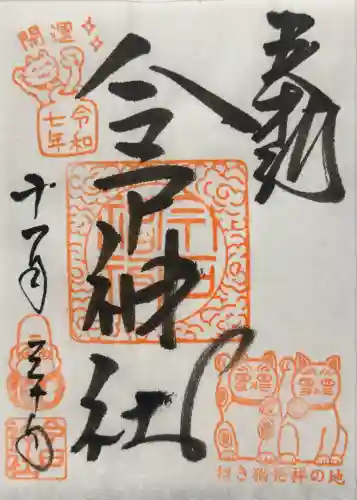 奉拝
今戸神社
開運
令和
七年
十一月
三十日
招き猫発祥の地